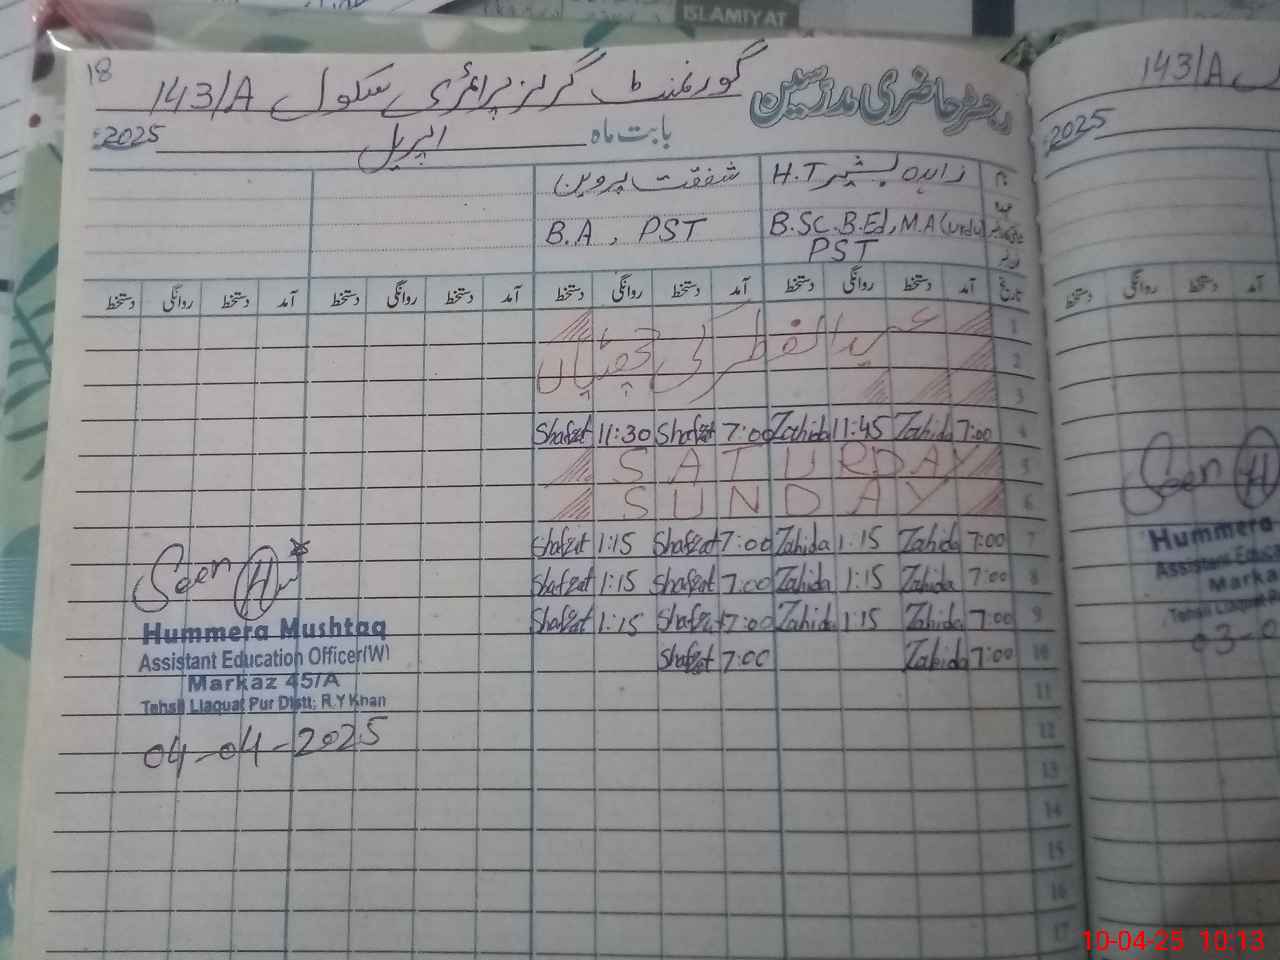 ISLAMIYAT
18
رجسٹر حاضری مدرسین گورنمنٹ گرلز پرائمری سکول 143/A
بابت ماہ اپریل 2025ء
نام زاہدہ بشیر H.T شفقت پروین
B.Sc. B.Ed, M.A (urdu) B.A, PST
PST
تاریخ آمد دستخط روانگی دستخط آمد دستخط روانگی دستخط آمد دستخط روانگی دستخط آمد دستخط روانگی دستخط
1 عیدالفطر کی چھٹیاں
2
3
4 7:00 Zahida 11:45 Zahida 7:00 Shafqat 11:30 Shafqat
5 SATURDAY
6 SUNDAY
7 7:00 Zahida 1:15 Zahida 7:00 Shafqat 1:15 Shafqat
8 7:00 Zahida 1:15 Zahida 7:00 Shafqat 1:15 Shafqat
9 7:00 Zahida 1:15 Zahida 7:00 Shafqat 1:15 Shafqat
10 7:00 Zahida 7:00 Shafqat
11
12
13
14
15
16
17
Seen
Hummera Mushtaq
Assistant Education Officer(W)
Markaz 45/A
Tehsil Liaquat Pur Distt; R.Y Khan
04-04-2025
143/A
2025ء
آمد دستخط روانگی دستخط
Seen
Hummera
Assistant Educa
Marka
Tehsil Liaquat P
03-0
10-04-25 10:13